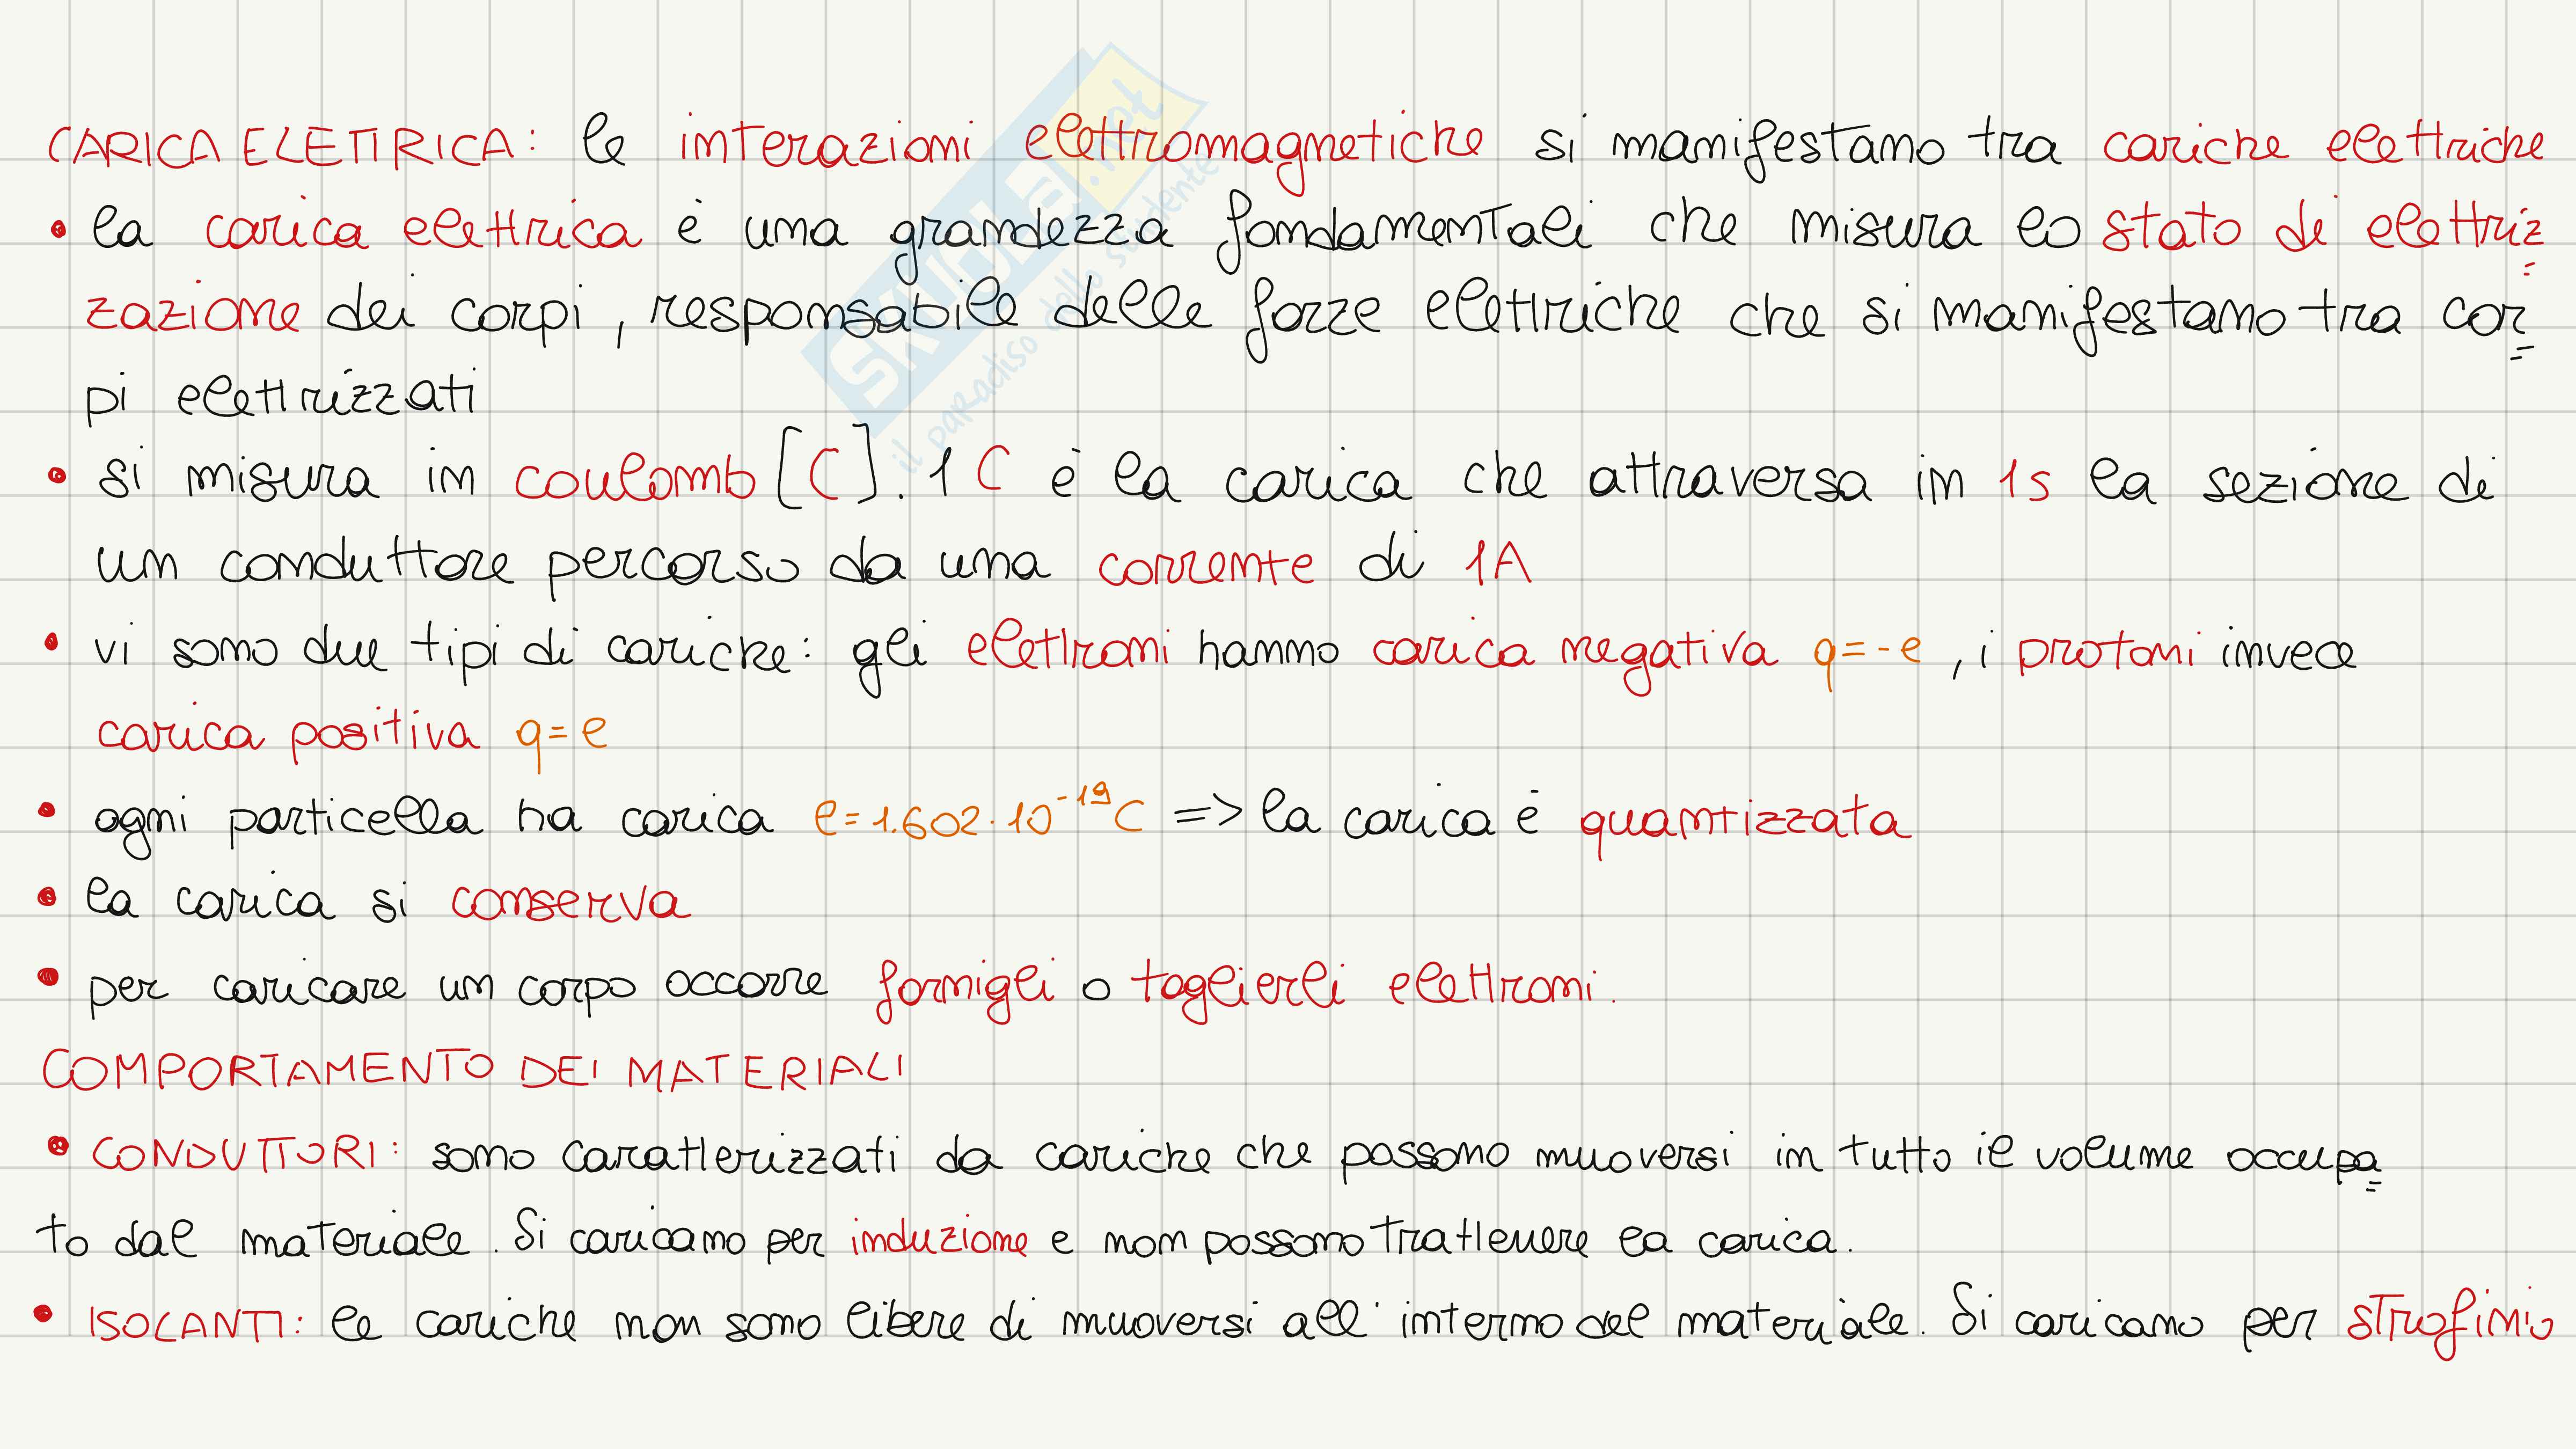 CARICA ELETTRICA: le interazioni elettromagnetiche si manifestano tra cariche elettriche
• la carica elettrica è una grandezza fondamentali che misura lo stato di elettriz
zazione dei corpi, responsabile delle forze elettriche che si manifestano tra cor
pi elettrizzati
• si misura in coulomb [C]. 1 C è la carica che attraversa in 1s la sezione di
un conduttore percorso da una corrente di 1A
• vi sono due tipi di cariche: gli elettroni hanno carica negativa q=-e, i protoni invece
carica positiva q=e
• ogni particella ha carica e=1.602·10⁻¹⁹C => la carica è quantizzata
• la carica si conserva
• per caricare un corpo occorre fornigli o toglierli elettroni.
COMPORTAMENTO DEI MATERIALI
• CONDUTTORI: sono caratterizzati da cariche che possono muoversi in tutto il volume occupa
to dal materiale. Si caricano per induzione e non possono trattenere la carica.
• ISOLANTI: le cariche non sono libere di muoversi all'interno del materiale. Si caricano per strofinio
SKUOLA.net
il paradiso dello studente